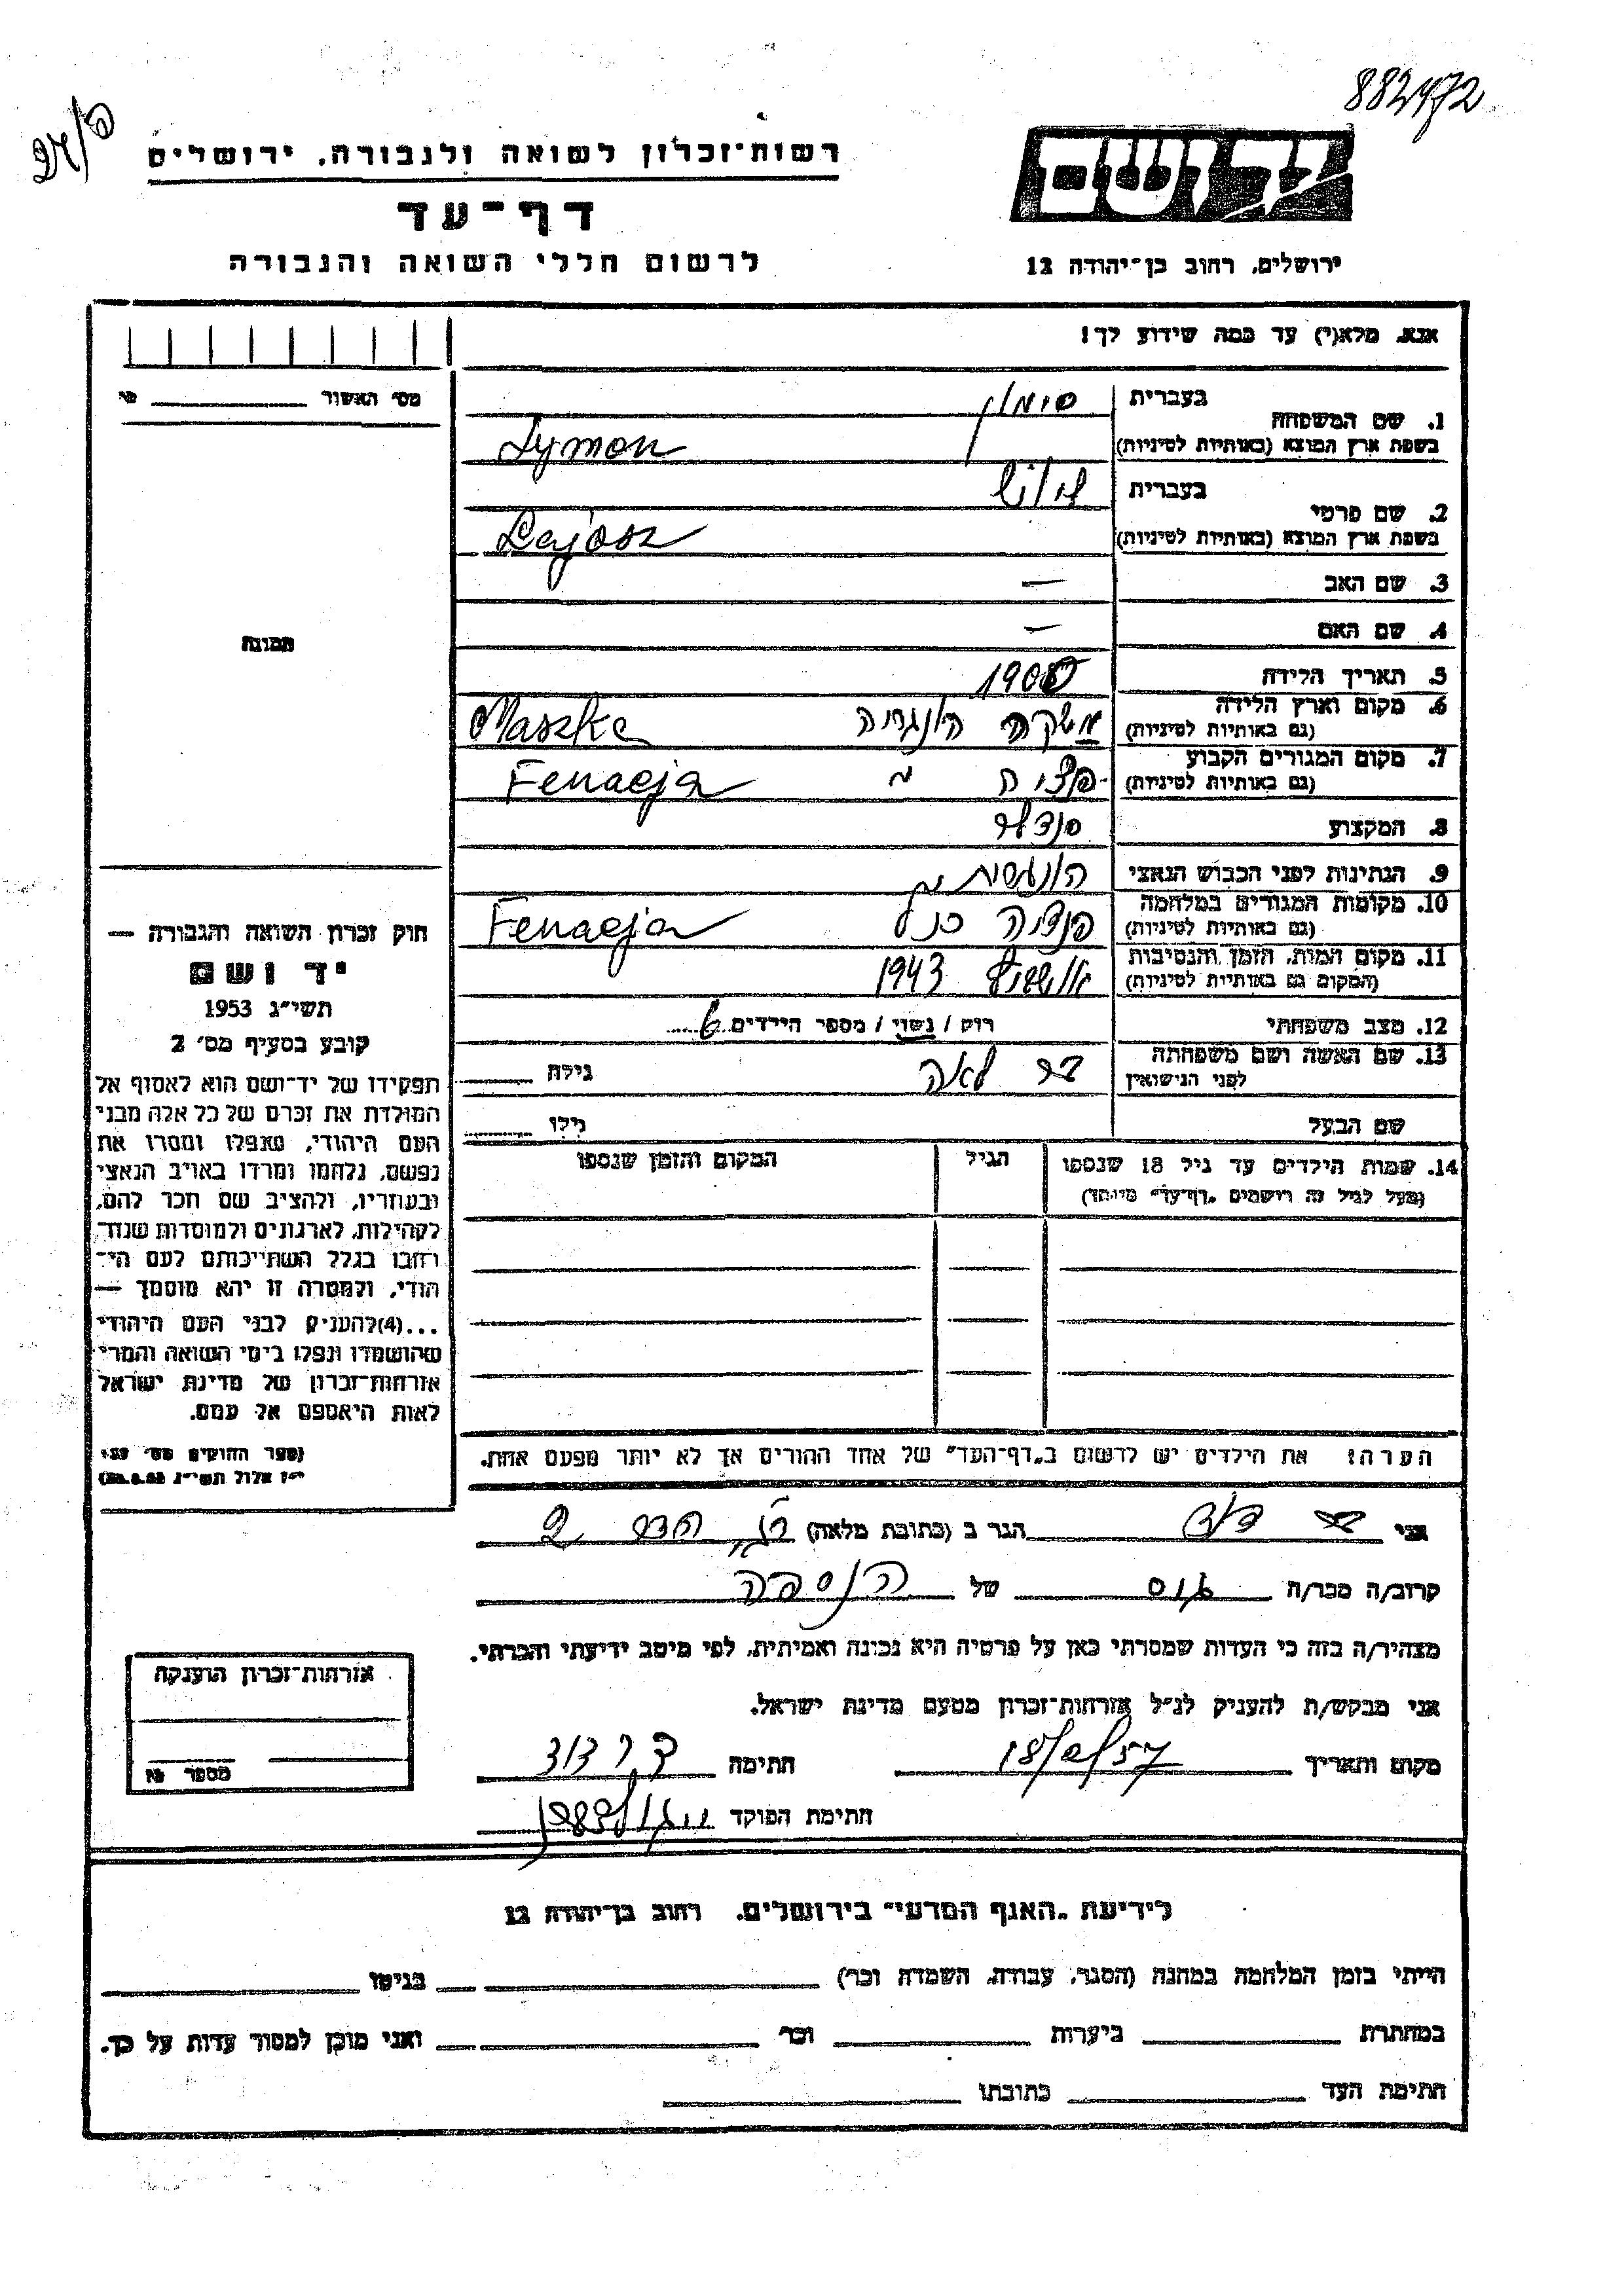 882472
רשות־זכרון לשואה ולגבורה, ירושלים
יד ושם
דף־עד
לרשום חללי השואה והגבורה
ירושלים, רחוב בן־יהודה 12
אנא, מלא(י) עד כמה שידוע לך!
מס׳ האשור
1. שם המשפחה
בעברית סימון
בשפת ארץ המוצא (באותיות לטיניות) Symon
2. שם פרטי
בעברית
בשפת ארץ המוצא (באותיות לטיניות) Lajosz
3. שם האב —
4. שם האם —
5. תאריך הלידה
6. מקום וארץ הלידה
(גם באותיות לטיניות) משקה הונגריה Maszke
7. מקום המגורים הקבוע
(גם באותיות לטיניות) Fenaeja
8. המקצוע סנדלר
9. הנתינות לפני הכבוש הנאצי הונגרית
10. מקומות המגורים במלחמה
(גם באותיות לטיניות) כנ"ל Fenaeja
11. מקום המות, הזמן והנסיבות
(המקום גם באותיות לטיניות) אושויץ 1943
12. מצב משפחתי רווק / נשוי / מספר הילדים 6
13. שם האשה ושם משפחתה
לפני הנישואין לאה גילה
שם הבעל גילו
14. שמות הילדים עד גיל 18 שנספו הגיל המקום והזמן שנספו
(מעל לגיל זה רושמים „דף־עד״ מיוחד)
הערה: את הילדים יש לרשום ב„דף־העד״ של אחד ההורים אך לא יותר מפעם אחת.
תמונה
חוק זכרון השואה והגבורה —
יד ושם
תשי״ג 1953
קובע בסעיף מס׳ 2
תפקידו של יד־ושם הוא לאסוף אל
המולדת את זכרם של כל אלה מבני
העם היהודי, שנפלו ומסרו את
נפשם, נלחמו ומרדו באויב הנאצי
ובעוזריו, ולהציב שם וזכר להם,
לקהילות, לארגונים ולמוסדות שנח־
רבו בגלל השתייכותם לעם הי־
הודי, ולמטרה זו יהא מוסמך —
...(4) להעניק לבני העם היהודי
שהושמדו ונפלו בימי השואה והמרי
אזרחות־זכרון של מדינת ישראל
לאות היאספם אל עמם.
(ספר החוקים מס׳ 132
י״ז אלול תשי״ג 28.8.53)
אני דוד הגר ב (כתובת מלאה)
קרוב/ה מכר/ה גיס של הנספה
מצהיר/ה בזה כי העדות שמסרתי כאן על פרטיה היא נכונה ואמיתית, לפי מיטב ידיעתי והכרתי.
אני מבקש/ת להעניק לנ״ל אזרחות־זכרון מטעם מדינת ישראל.
מקום ותאריך חתימה
חתימת הפוקד
אזרחות־זכרון הוענקה
מספר
לידיעת „האגף המדעי״ בירושלים, רחוב בן־יהודה 12
הייתי בזמן המלחמה במחנה (הסגר, עבודה, השמדה וכו׳) בגיטו
במחתרת ביערות וכו׳ ואני מוכן למסור עדות על כך.
חתימת העד כתובתו